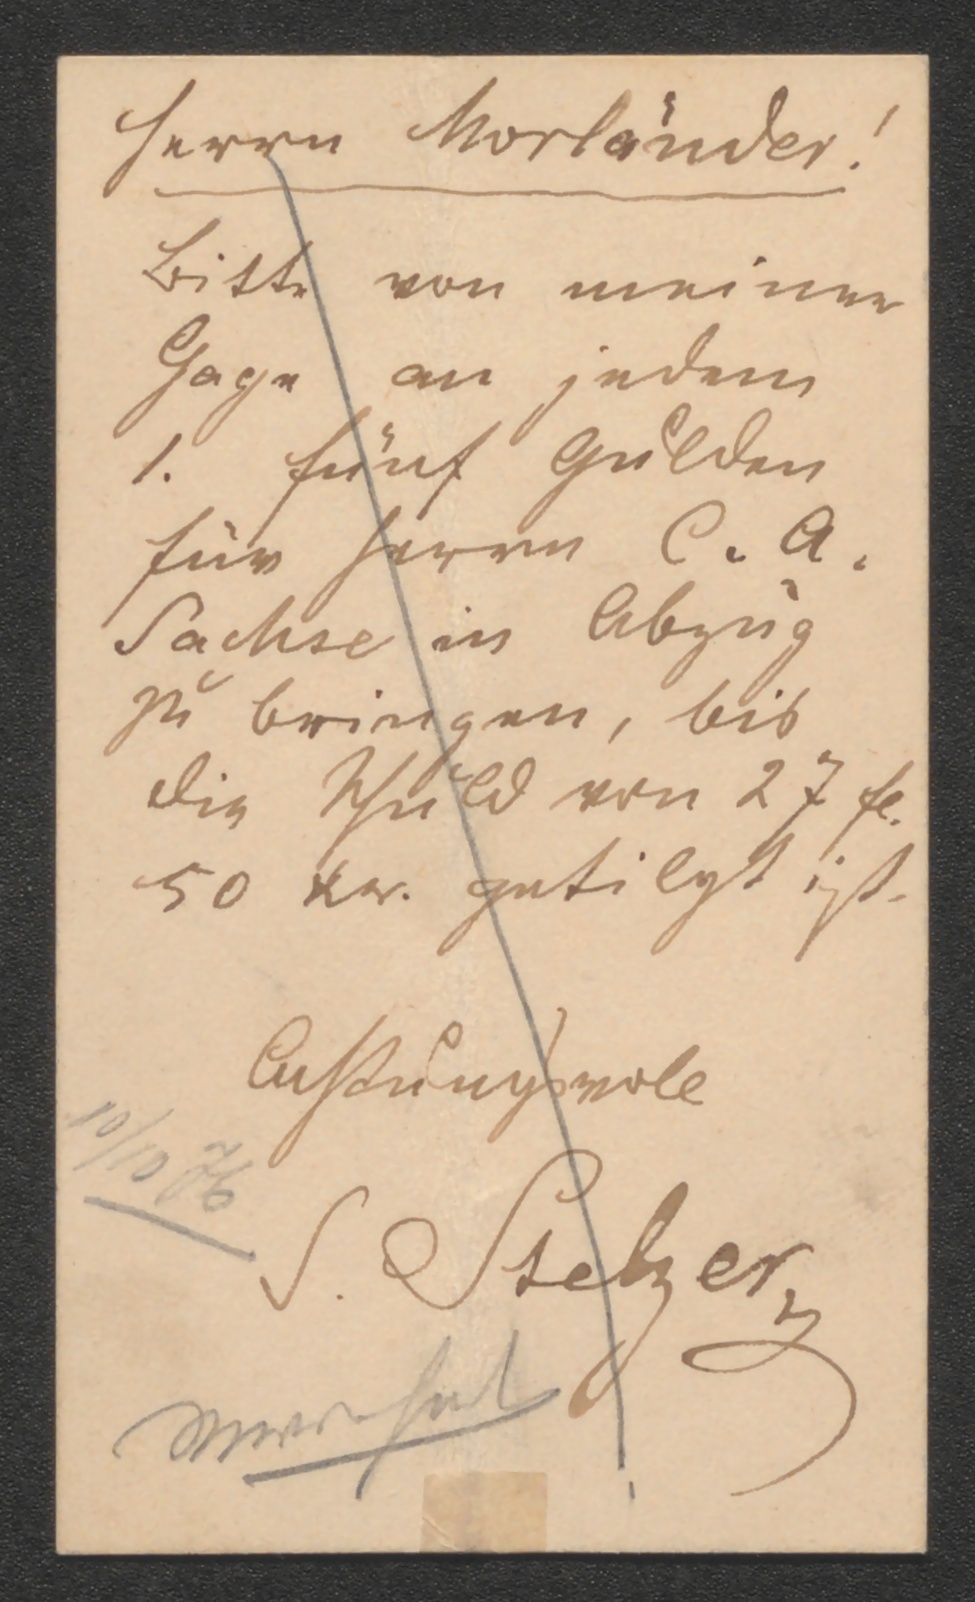 Herrn Morländer!
Bitte von meiner
Gage an jedem
1. fünf Gulden
für Herrn C. A.
Sachse in Abzug
zu bringen, bis
die Schuld von 27 fl.
50 kr. getilgt ist.
Achtungsvoll
10/10 76
S. Stelzer